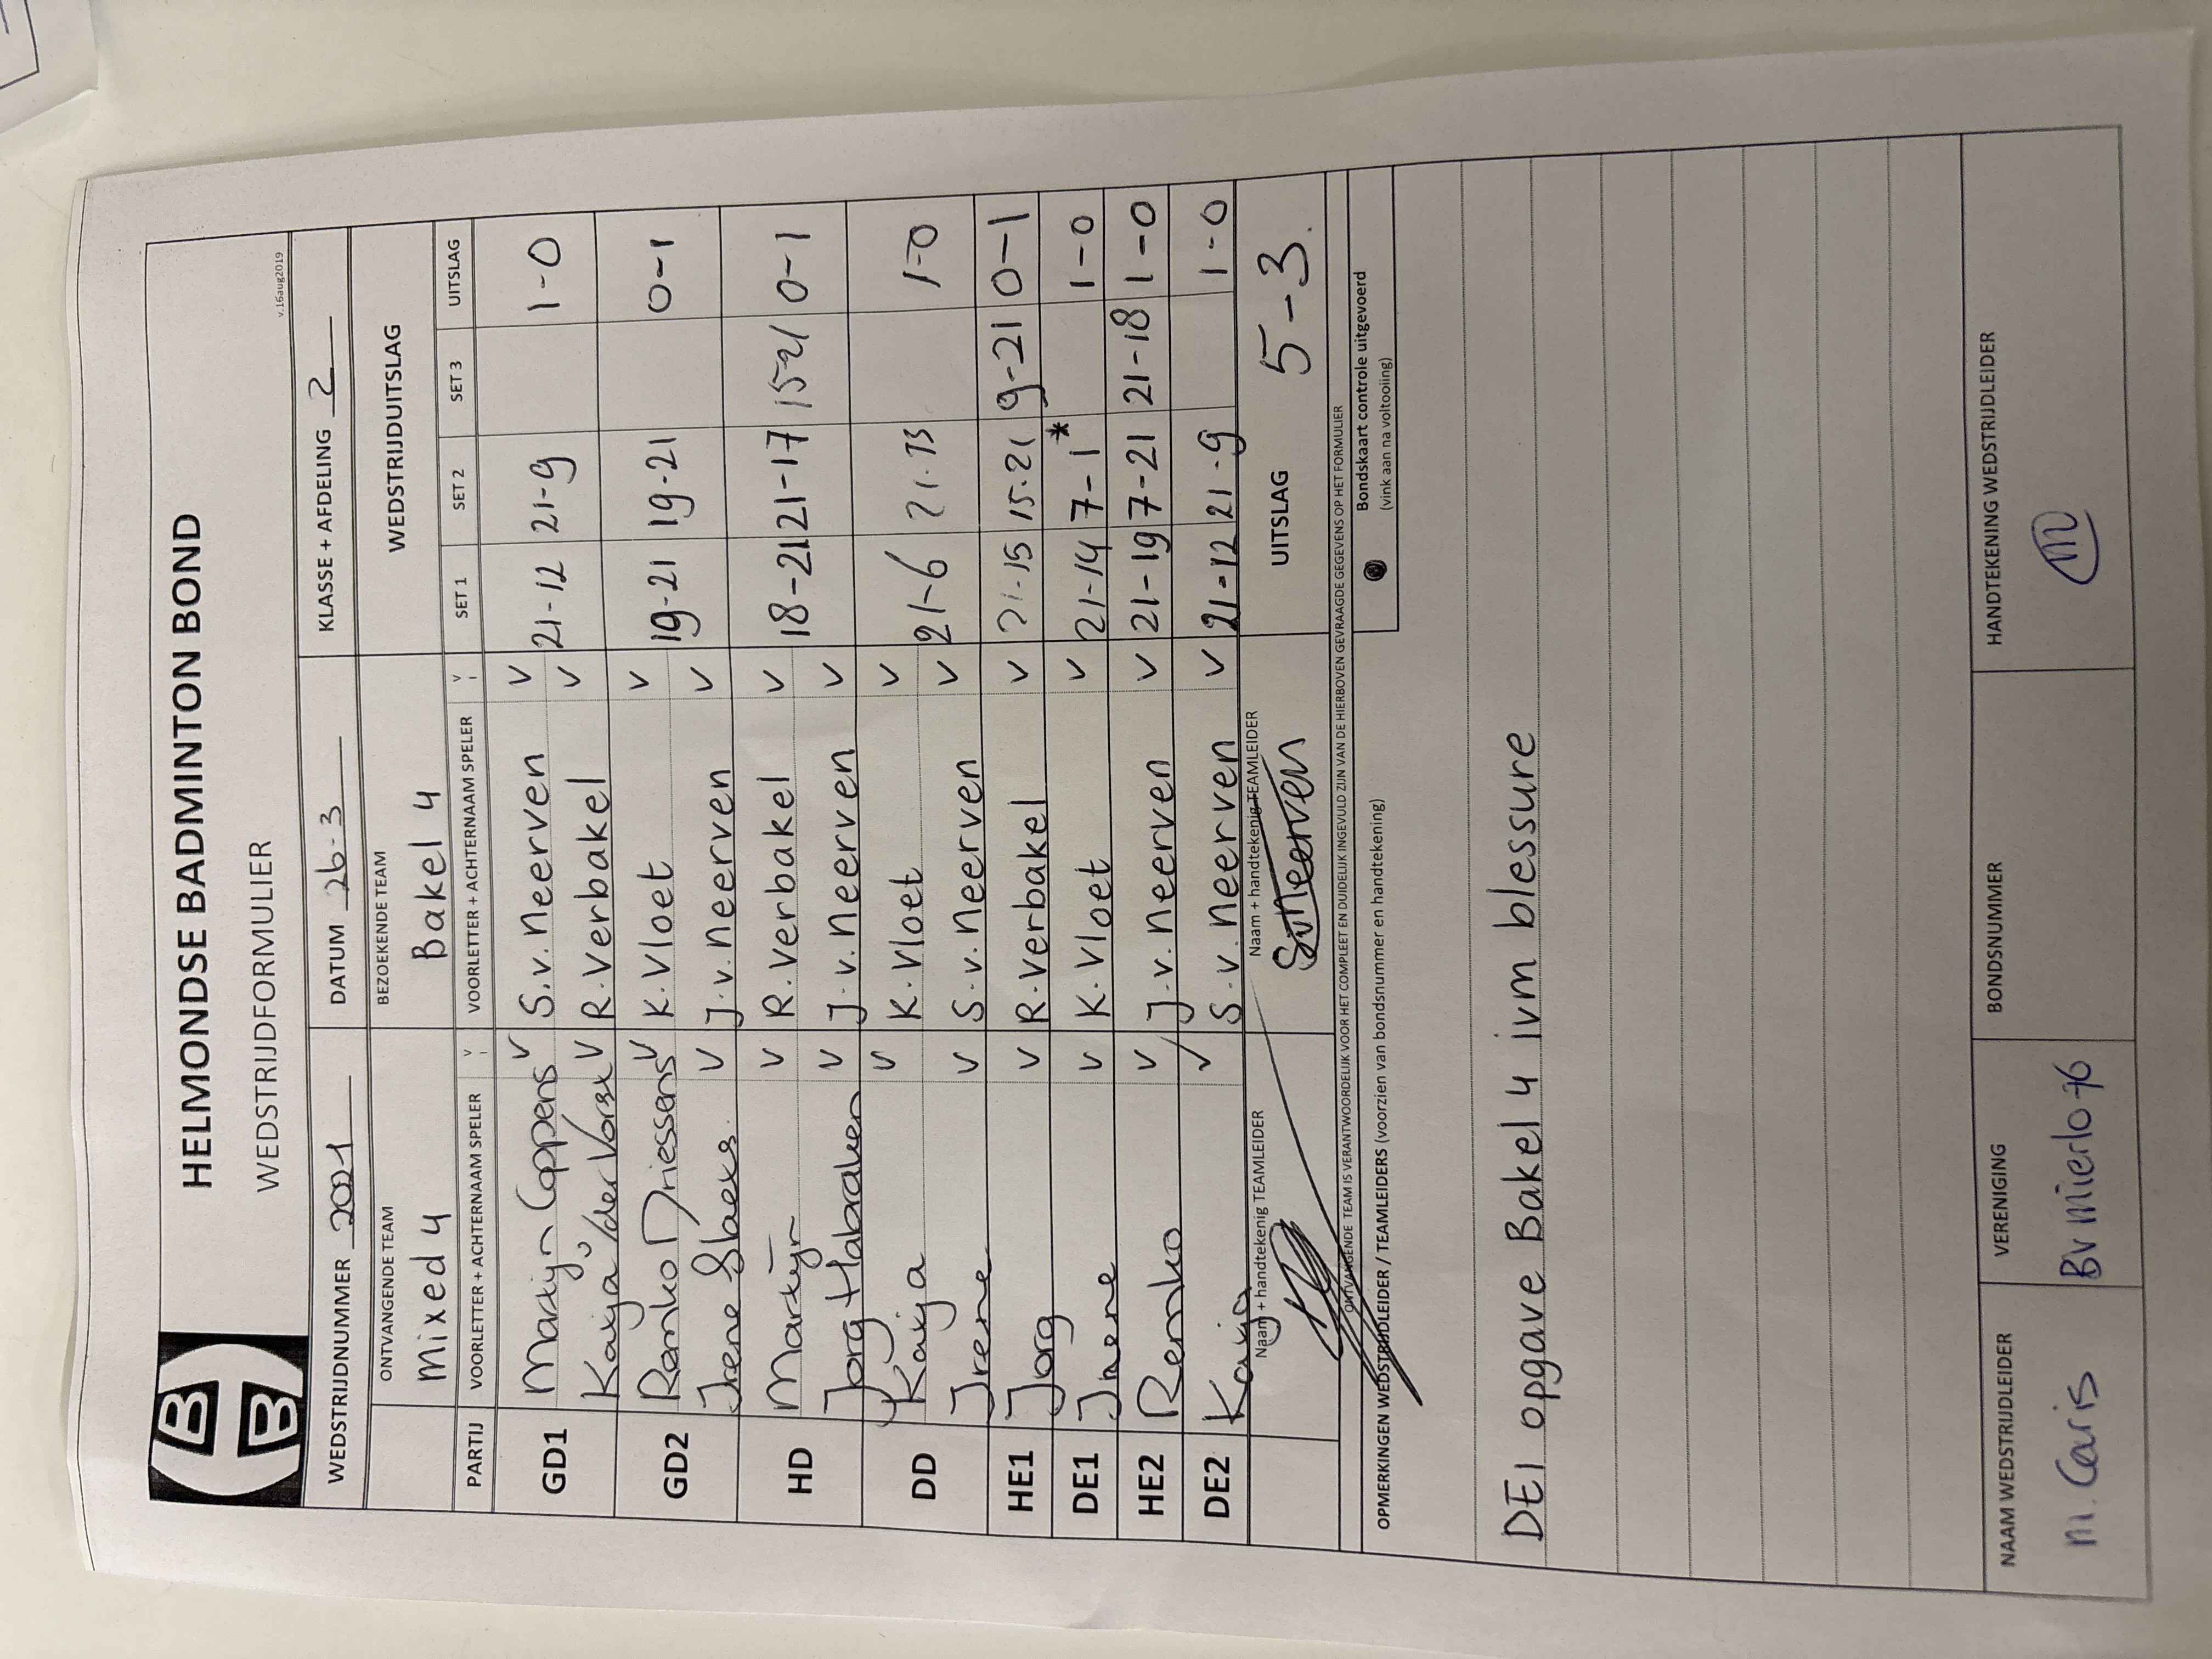 HELMONDSE BADMINTON BOND
WEDSTRIJDFORMULIER
v.16aug2019
WEDSTRIJDNUMMER 2021 DATUM 26-3 KLASSE + AFDELING 2
ONTVANGENDE TEAM BEZOEKENDE TEAM WEDSTRIJDUITSLAG
Mixed 4 Bakel 4
PARTIJ VOORLETTER + ACHTERNAAM SPELER V VOORLETTER + ACHTERNAAM SPELER V SET 1 SET 2 SET 3 UITSLAG
GD1 Martijn Coppens V S.v. Neerven V 21-12 21-9 1-0
Katja v/der Vorst V R. Verbakel V
GD2 Remko Driessens V K. Vloet V 19-21 19-21 0-1
Irene Slaets. V J.v. Neerven V
HD Martijn V R. Verbakel V 18-21 21-17 15-21 0-1
Jorg Habraken V J.v. Neerven V
DD Katja V K. Vloet V 21-6 21-13 1-0
Irene V S.v. Neerven V
HE1 Jorg V R. Verbakel V 21-15 15-21 9-21 0-1
DE1 Irene V K. Vloet V 21-14 7-1* 1-0
HE2 Remko V J.v. Neerven V 21-19 7-21 21-18 1-0
DE2 Katja V S.v. Neerven V 21-12 21-9 1-0
Naam + handtekenig TEAMLEIDER Naam + handtekenig TEAMLEIDER UITSLAG 5-3.
SvNeerven
ONTVANGENDE TEAM IS VERANTWOORDELIJK VOOR HET COMPLEET EN DUIDELIJK INGEVULD ZIJN VAN DE HIERBOVEN GEVRAAGDE GEGEVENS OP HET FORMULIER
OPMERKINGEN WEDSTRIJDLEIDER / TEAMLEIDERS (voorzien van bondsnummer en handtekening)
Bondskaart controle uitgevoerd
(vink aan na voltooiing)
DE1 opgave Bakel 4 ivm blessure
NAAM WEDSTRIJDLEIDER VERENIGING BONDSNUMMER HANDTEKENING WEDSTRIJDLEIDER
M. Caris BV Mierlo 76 m